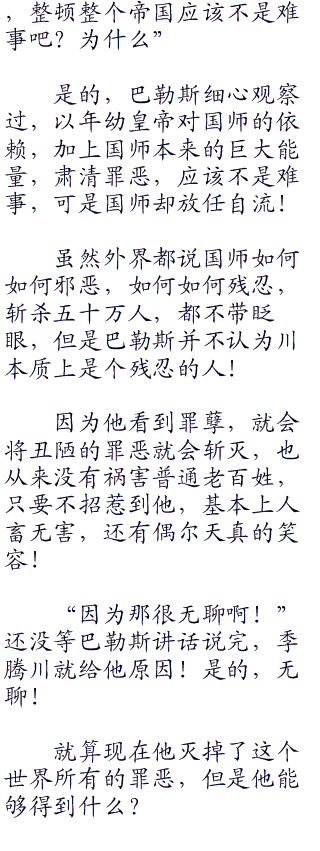 ，整顿整个帝国应该不是难
事吧？为什么”
是的，巴勒斯细心观察
过，以年幼皇帝对国师的依
赖，加上国师本来的巨大能
量，肃清罪恶，应该不是难
事，可是国师却放任自流！
虽然外界都说国师如何
如何邪恶，如何如何残忍，
斩杀五十万人，都不带眨
眼，但是巴勒斯并不认为川
本质上是个残忍的人！
因为他看到罪孽，就会
将丑陋的罪恶就会斩灭，也
从来没有祸害普通老百姓，
只要不招惹到他，基本上人
畜无害，还有偶尔天真的笑
容！
“因为那很无聊啊！”
还没等巴勒斯讲话说完，季
腾川就给他原因！是的，无
聊！
就算现在他灭掉了这个
世界所有的罪恶，但是他能
够得到什么？